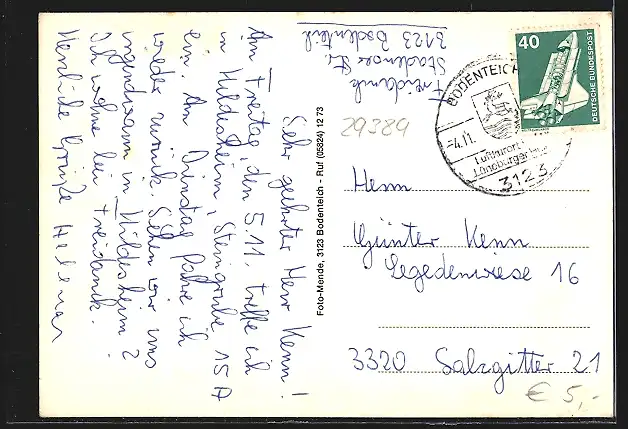 Sehr geehrter Herr Kenn!
Am Freitag, den 5.11. treffe ich
in Hildesheim, Steingrube 15A
ein. Am Dienstag fahre ich
wieder zurück. Sehen wir uns
irgendwann in Hildesheim?
Ich wohne bei Freidank.
Herzliche Grüße Helmar
Freidank
3123 Bodenteich
Foto-Mende, 3123 Bodenteich - Ruf (05824) 12 73
29384
40
DEUTSCHE BUNDESPOST
BODENTEICH
-4.11.
Luftkurort
Lüneburger
3123
Herrn
Günter Kenn
Segedenwiese 16
3320 Salzgitter 21
€ 5,-